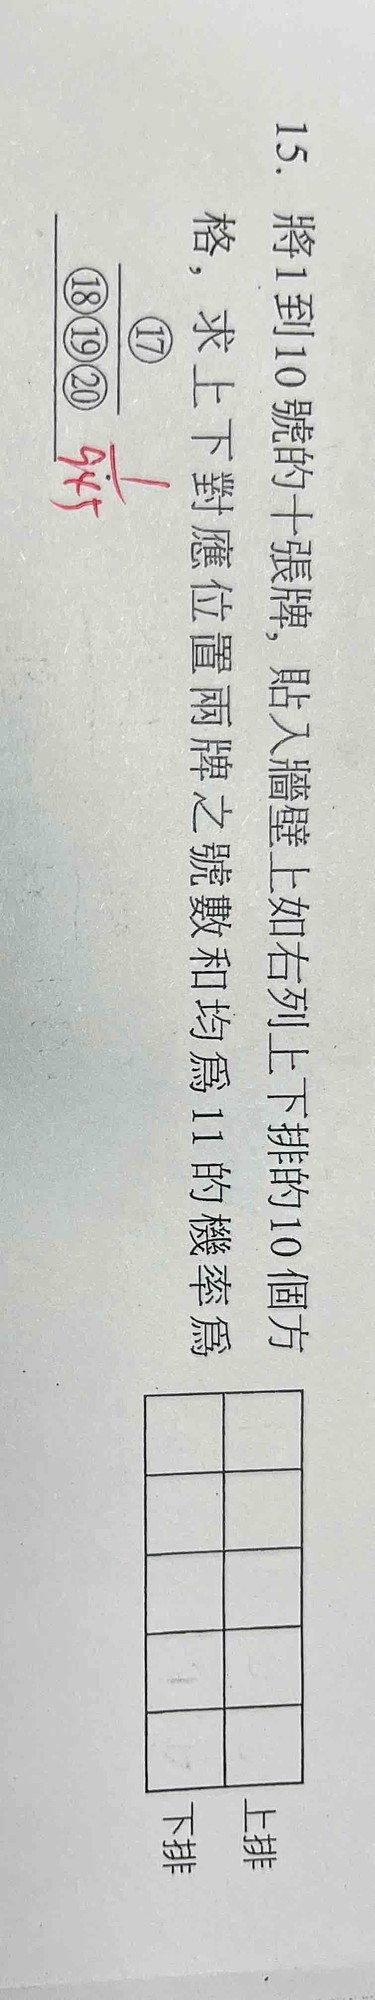 15. 將1到10號的十張牌, 貼入牆壁上如右列上下排的10個方
格, 求上下對應位置兩牌之號數和均爲11的機率爲
⑰
⑱⑲⑳
1
945
上排
下排